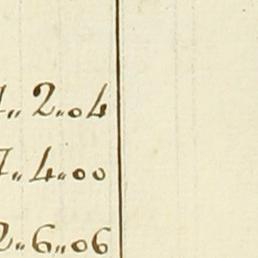 2„04
4„00
6„06